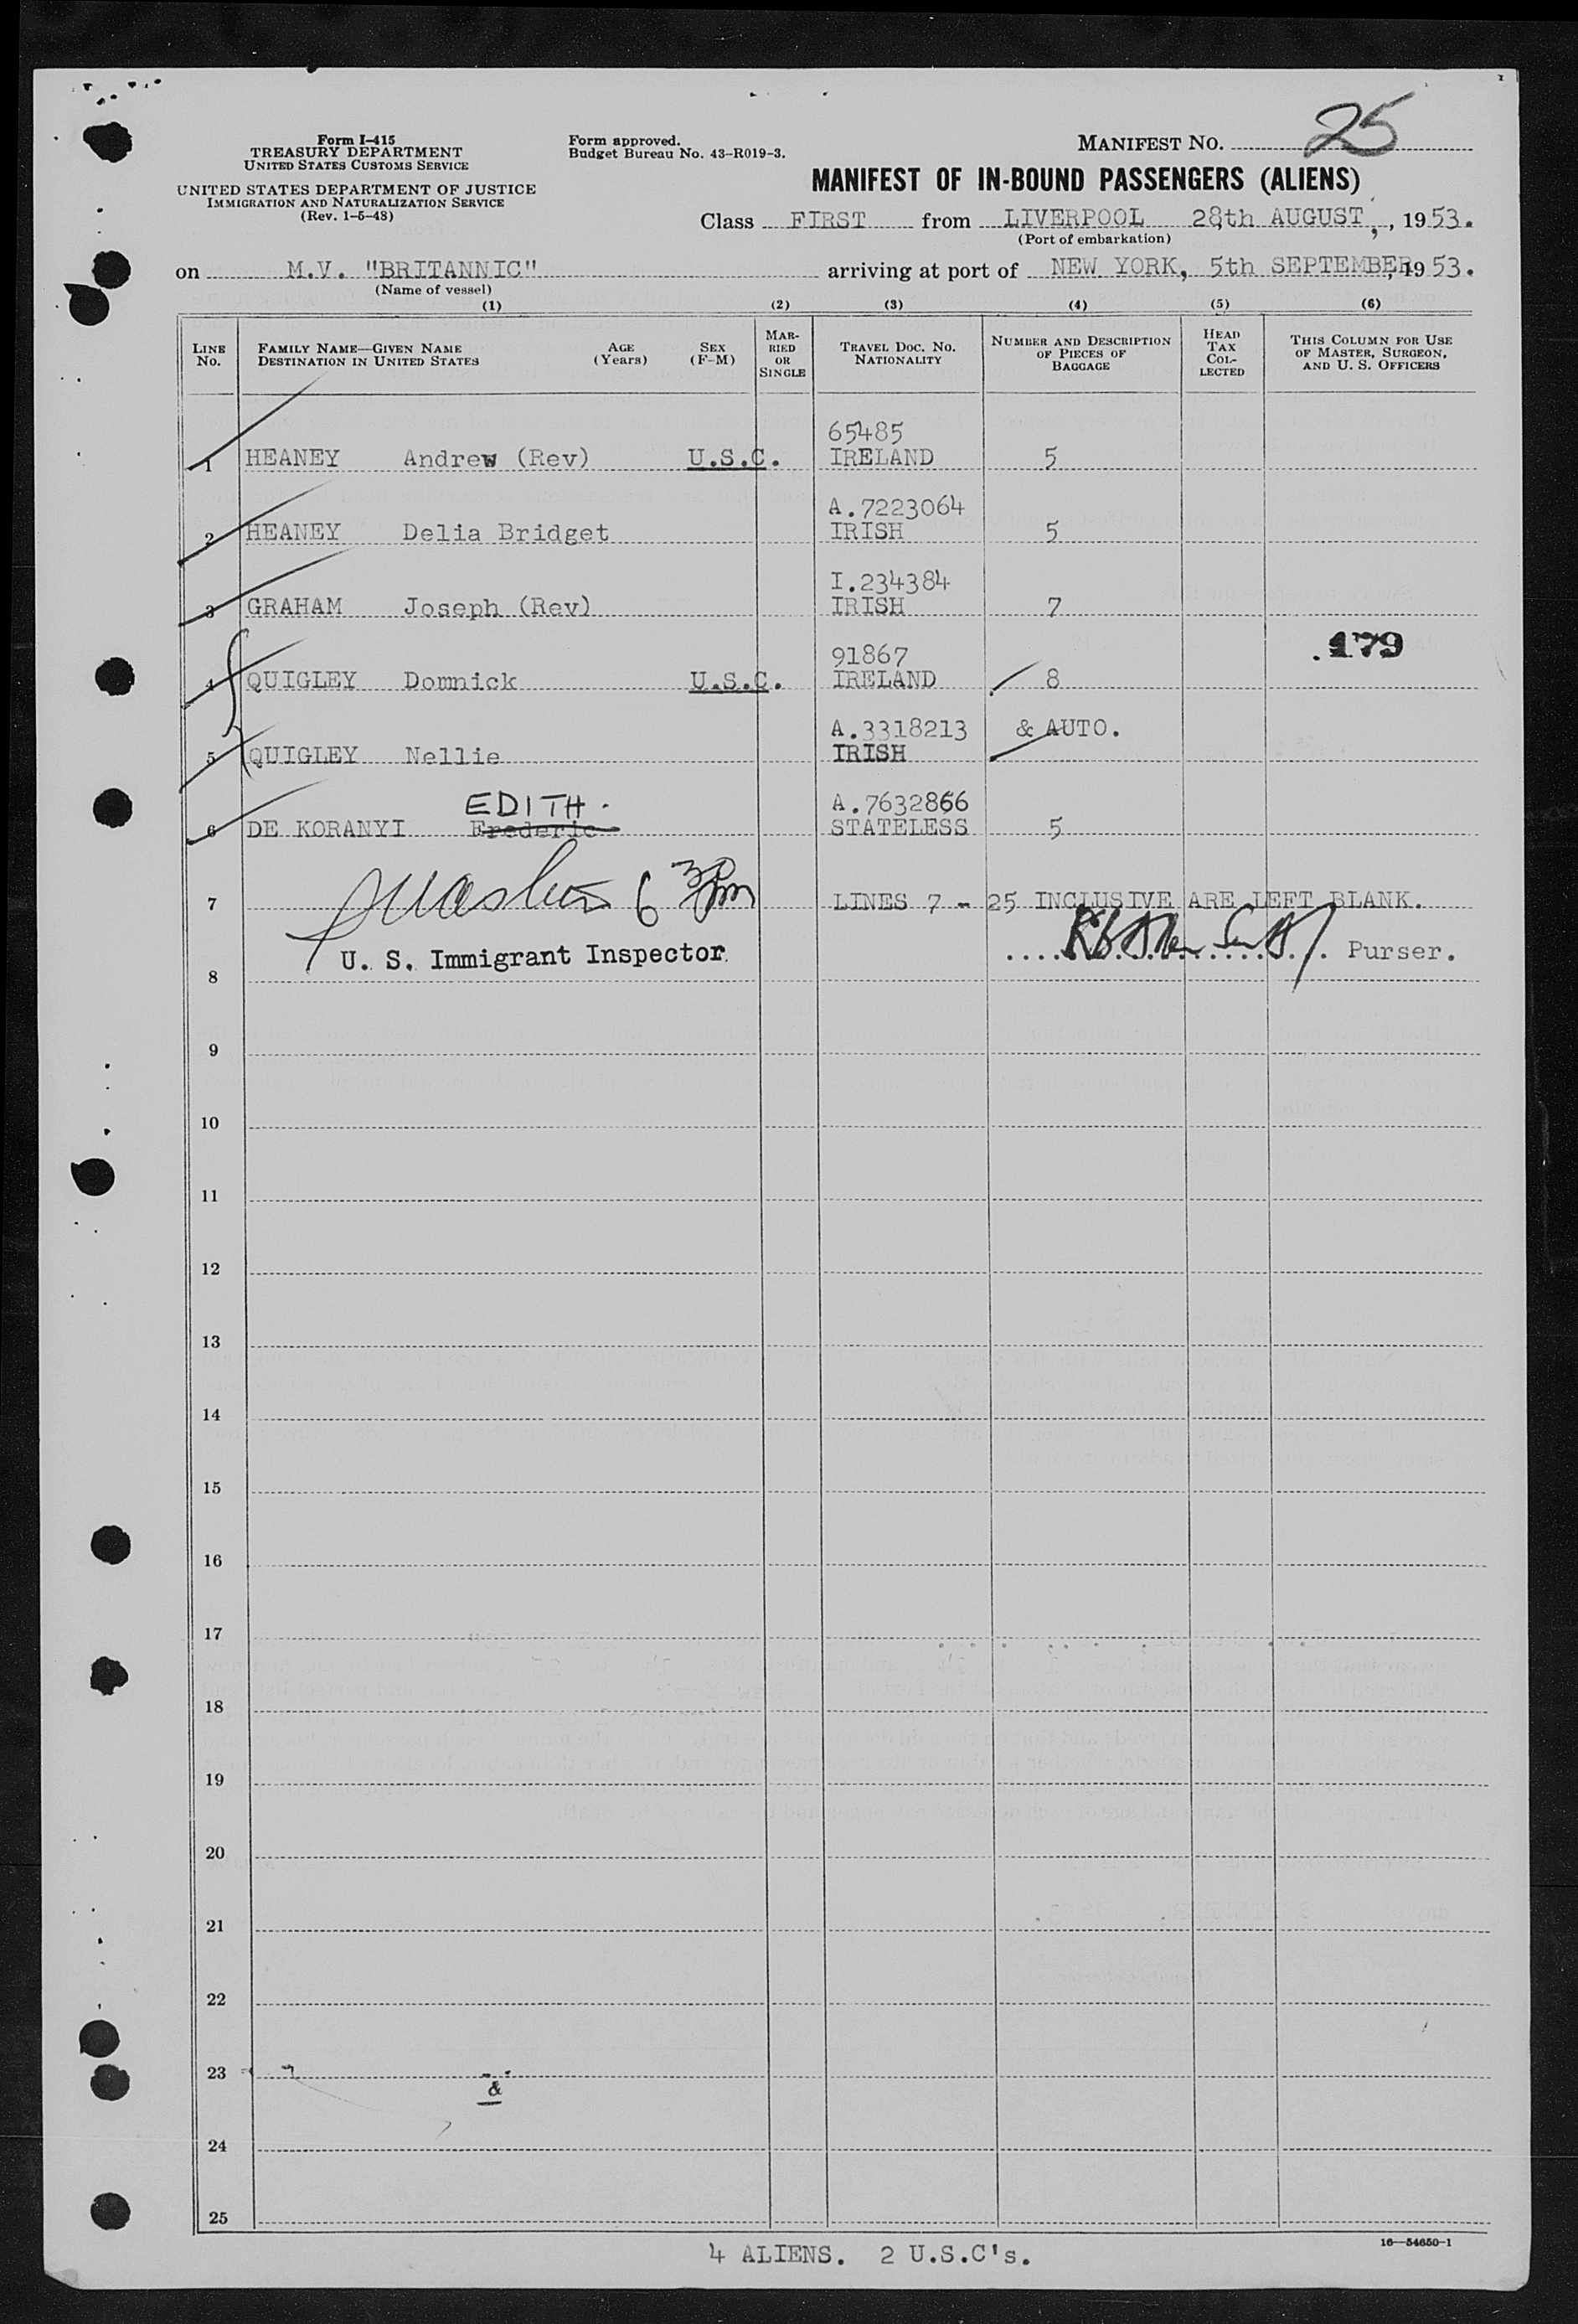 Form I-415
TREASURY DEPARTMENT
UNITED STATES CUSTOMS SERVICE
UNITED STATES DEPARTMENT OF JUSTICE
IMMIGRATION AND NATURALIZATION SERVICE
(Rev. 1-5-48)
Form approved.
Budget Bureau No. 43-R019-3.
MANIFEST NO. 25
MANIFEST OF IN-BOUND PASSENGERS (ALIENS)
Class FIRST from LIVERPOOL 28th AUGUST, , 1953.
(Port of embarkation)
on M.V. "BRITANNIC" arriving at port of NEW YORK, 5th SEPTEMBER, 1953.
(Name of vessel)
(1) (2) (3) (4) (5) (6)
LINE No. FAMILY NAME—GIVEN NAME DESTINATION IN UNITED STATES AGE (Years) SEX (F-M) MARRIED OR SINGLE TRAVEL DOC. NO. NATIONALITY NUMBER AND DESCRIPTION OF PIECES OF BAGGAGE HEAD TAX COLLECTED THIS COLUMN FOR USE OF MASTER, SURGEON, AND U. S. OFFICERS
65485
1 HEANEY Andrew (Rev) U.S.C. IRELAND 5
A.7223064
2 HEANEY Delia Bridget IRISH 5
I.234384
3 GRAHAM Joseph (Rev) IRISH 7
91867 .179
4 QUIGLEY Domnick U.S.C. IRELAND 8
A.3318213 & AUTO.
5 QUIGLEY Nellie IRISH
EDITH. A.7632866
6 DE KORANYI Frederic STATELESS 5
7 6 LINES 7 - 25 INCLUSIVE ARE LEFT BLANK.
U. S. Immigrant Inspector Purser.
8
9
10
11
12
13
14
15
16
17
18
19
20
21
22
23
&
24
25
16—54650-1
4 ALIENS. 2 U.S.C's.